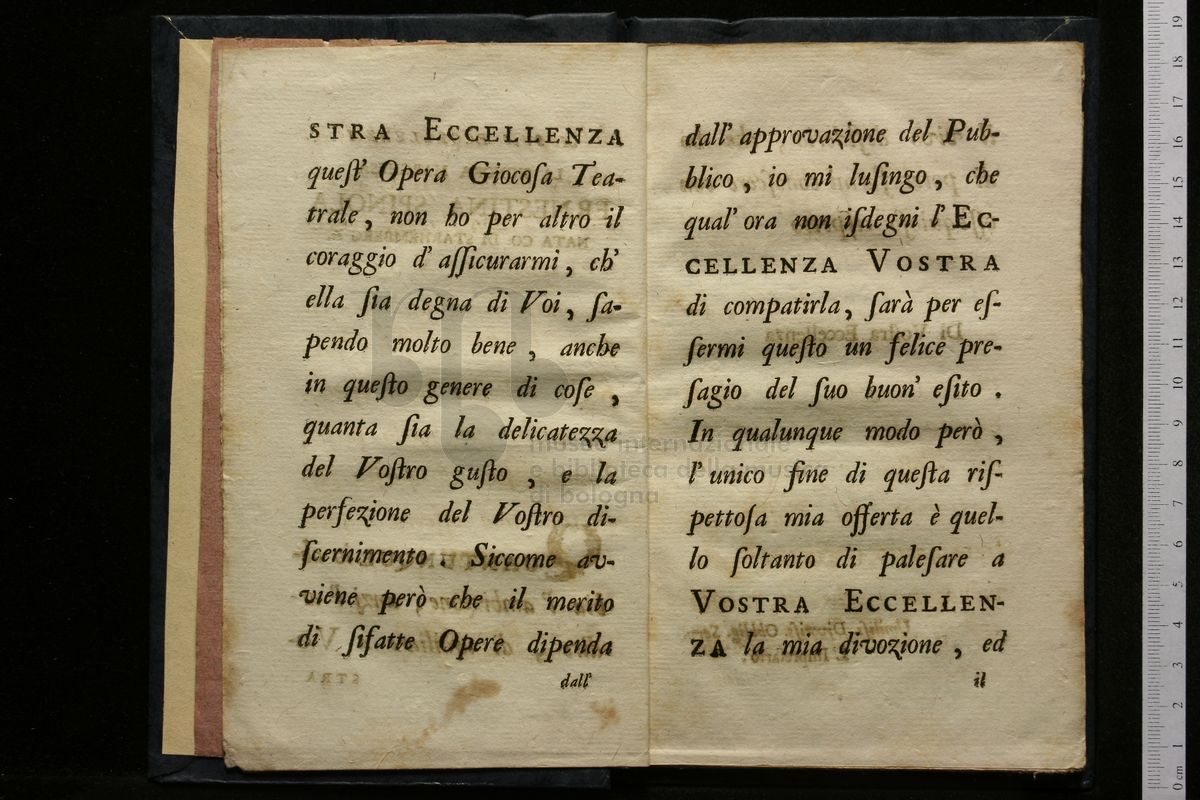 STRA ECCELLENZA
queſt' Opera Giocoſa Tea-
trale, non ho per altro il
coraggio d' aſſicurarmi, ch'
ella ſia degna di Voi, ſa-
pendo molto bene, anche
in queſto genere di coſe,
quanta ſia la delicatezza
del Voſtro guſto, e la
perfezione del Voſtro di-
ſcernimento. Siccome av-
viene però che il merito
di ſifatte Opere dipenda
dall'
dall' approvazione del Pub-
blico, io mi luſingo, che
qual' ora non iſdegni l' EC-
CELLENZA VOSTRA
di compatirla, ſarà per eſ-
ſermi queſto un felice pre-
ſagio del ſuo buon' eſito.
In qualunque modo però,
l' unico fine di queſta riſ-
pettoſa mia offerta è quel-
lo ſoltanto di paleſare a
VOSTRA ECCELLEN-
ZA la mia divozione, ed
il
museo internazionale
e biblioteca della musica
di bologna
0 cm 1 2 3 4 5 6 7 8 9 10 11 12 13 14 15 16 17 18 19